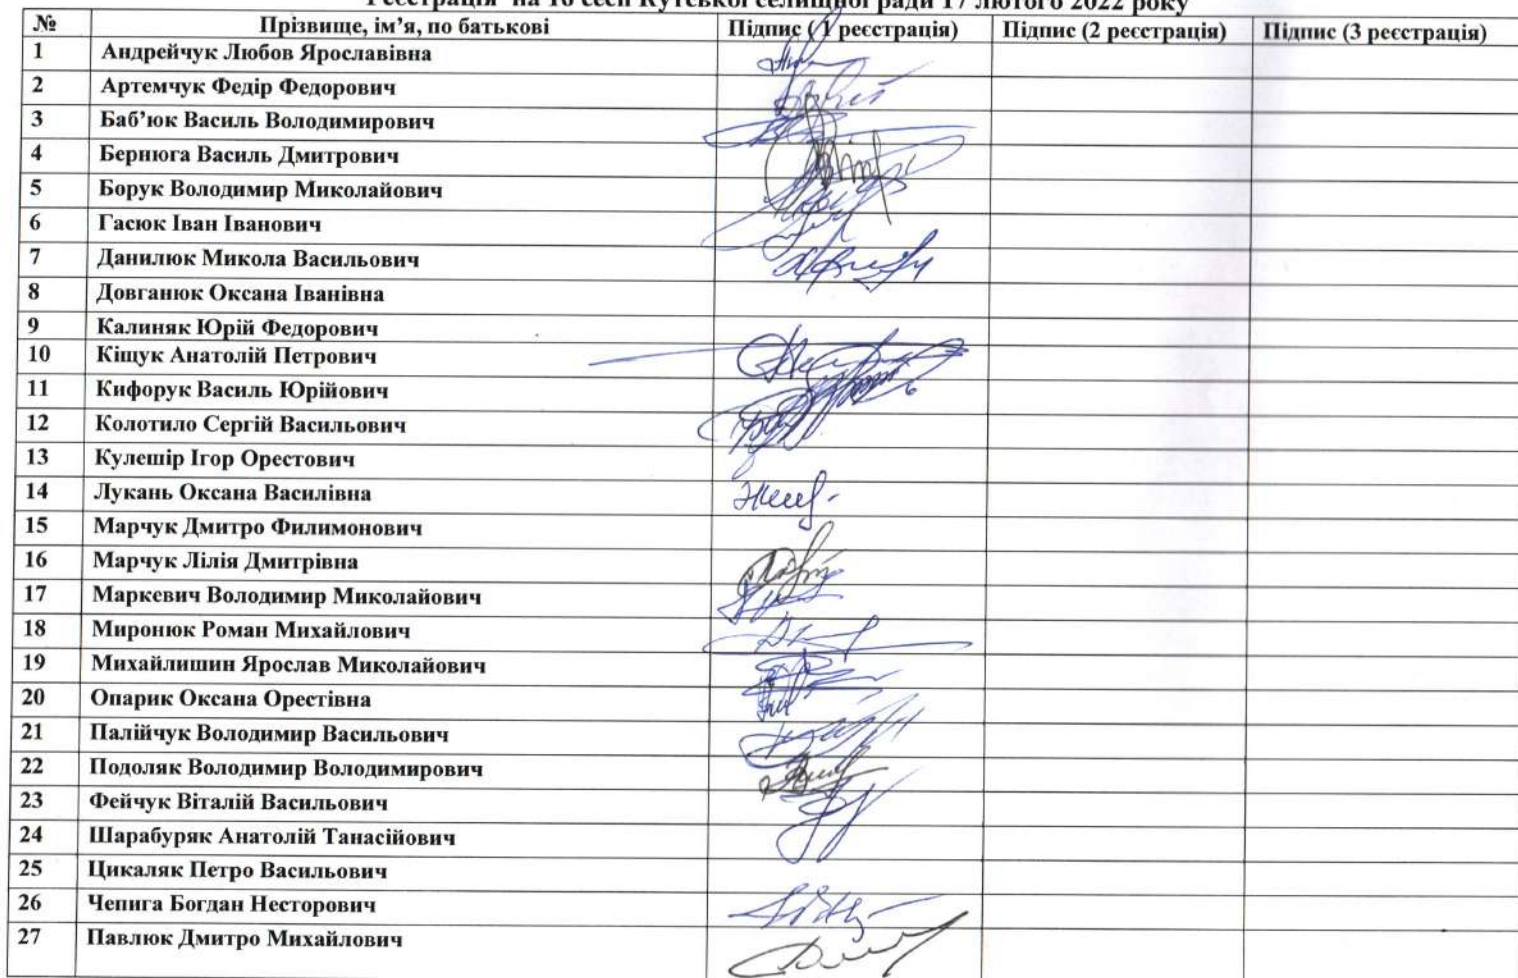 Реєстрація на 16 сесії Кутської селищної ради 17 лютого 2022 року
№ Прізвище, ім’я, по батькові Підпис (1 реєстрація) Підпис (2 реєстрація) Підпис (3 реєстрація)
1 Андрейчук Любов Ярославівна
2 Артемчук Федір Федорович
3 Баб’юк Василь Володимирович
4 Бернюга Василь Дмитрович
5 Борук Володимир Миколайович
6 Гасюк Іван Іванович
7 Данилюк Микола Васильович
8 Довганюк Оксана Іванівна
9 Калиняк Юрій Федорович
10 Кіщук Анатолій Петрович
11 Кифорук Василь Юрійович
12 Колотило Сергій Васильович
13 Кулешір Ігор Орестович
14 Лукань Оксана Василівна
15 Марчук Дмитро Филимонович
16 Марчук Лілія Дмитрівна
17 Маркевич Володимир Миколайович
18 Миронюк Роман Михайлович
19 Михайлишин Ярослав Миколайович
20 Опарик Оксана Орестівна
21 Палійчук Володимир Васильович
22 Подоляк Володимир Володимирович
23 Фейчук Віталій Васильович
24 Шарабуряк Анатолій Танасійович
25 Цикаляк Петро Васильович
26 Чепига Богдан Несторович
27 Павлюк Дмитро Михайлович